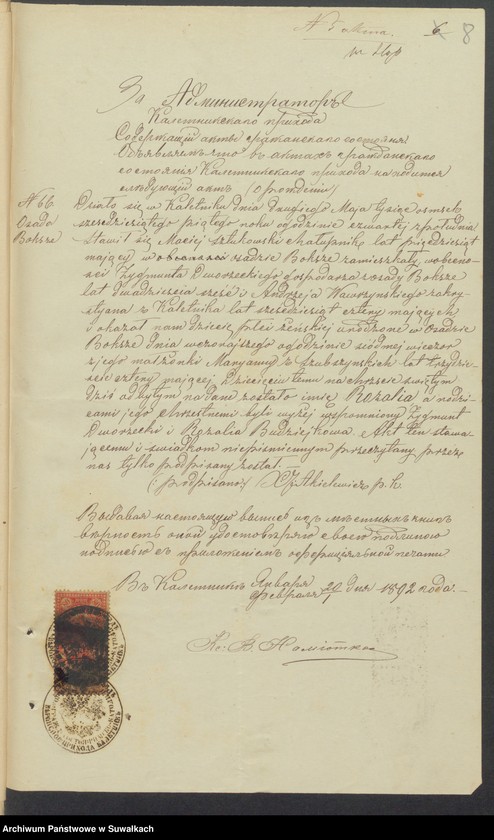 N 5 акта. 6 8
За Администраторъ
Калетникскаго прихода
Содержащій акты гражданскаго состоянія
Объявляетъ что въ актахъ гражданскаго
состоянія Калетникскаго прихода находится
слѣдующій актъ (о рожденіи)
N 66
Osada
Boksze
Działo się w Kaletniku dnia drugiego Maja tysiąc osmset
szesdziesiątego piątego roku ogodzinie czwartej z południa
Stawił się Maciej Sztukowski chałupnik lat pięćdziesiąt
mający w osadzie Boksze zamieszkały, wobecno-
sci Zygmunta Dworzeckiego gospodarza osady Boksze
lat dwadziescia sześć i Andrzeja Wawrzynskiego
z Kaletnika lat szesdziesiąt cztery mających
i okazał nam dziecię płci żeńskiej urodzone w Osadzie
Boksze dnia wczorajszego ogodzinie siódmej wieczor
z jego małżonki Maryanny z Szubzynskich lat trzydzie-
sci cztery mającej. Dziecięciu temu na chrzcie świętym
dziś odbytym nadane zostało imię Rozalia a rodzi-
cami jego chrzestnemi byli wyżej wspomniony Zygmunt
Dworzecki i Rozalia Budziejkowa. Akt ten stawa-
jącemu i swiadkom niepismiennym przeczytany przez
nas tylko podpisany został. —
(podpisano) X J. Akielewicz p. k.
Выдавая настоящую выпись изъ мѣстныхъ книгъ
вѣрность оной удостовѣряю своею подписью
съ приложеніемъ оффиціяльной печати
Въ Калетникъ Января 20/1 дня 1892 года. —
Февраля
Кс. В.
Archiwum Państwowe w Suwałkach